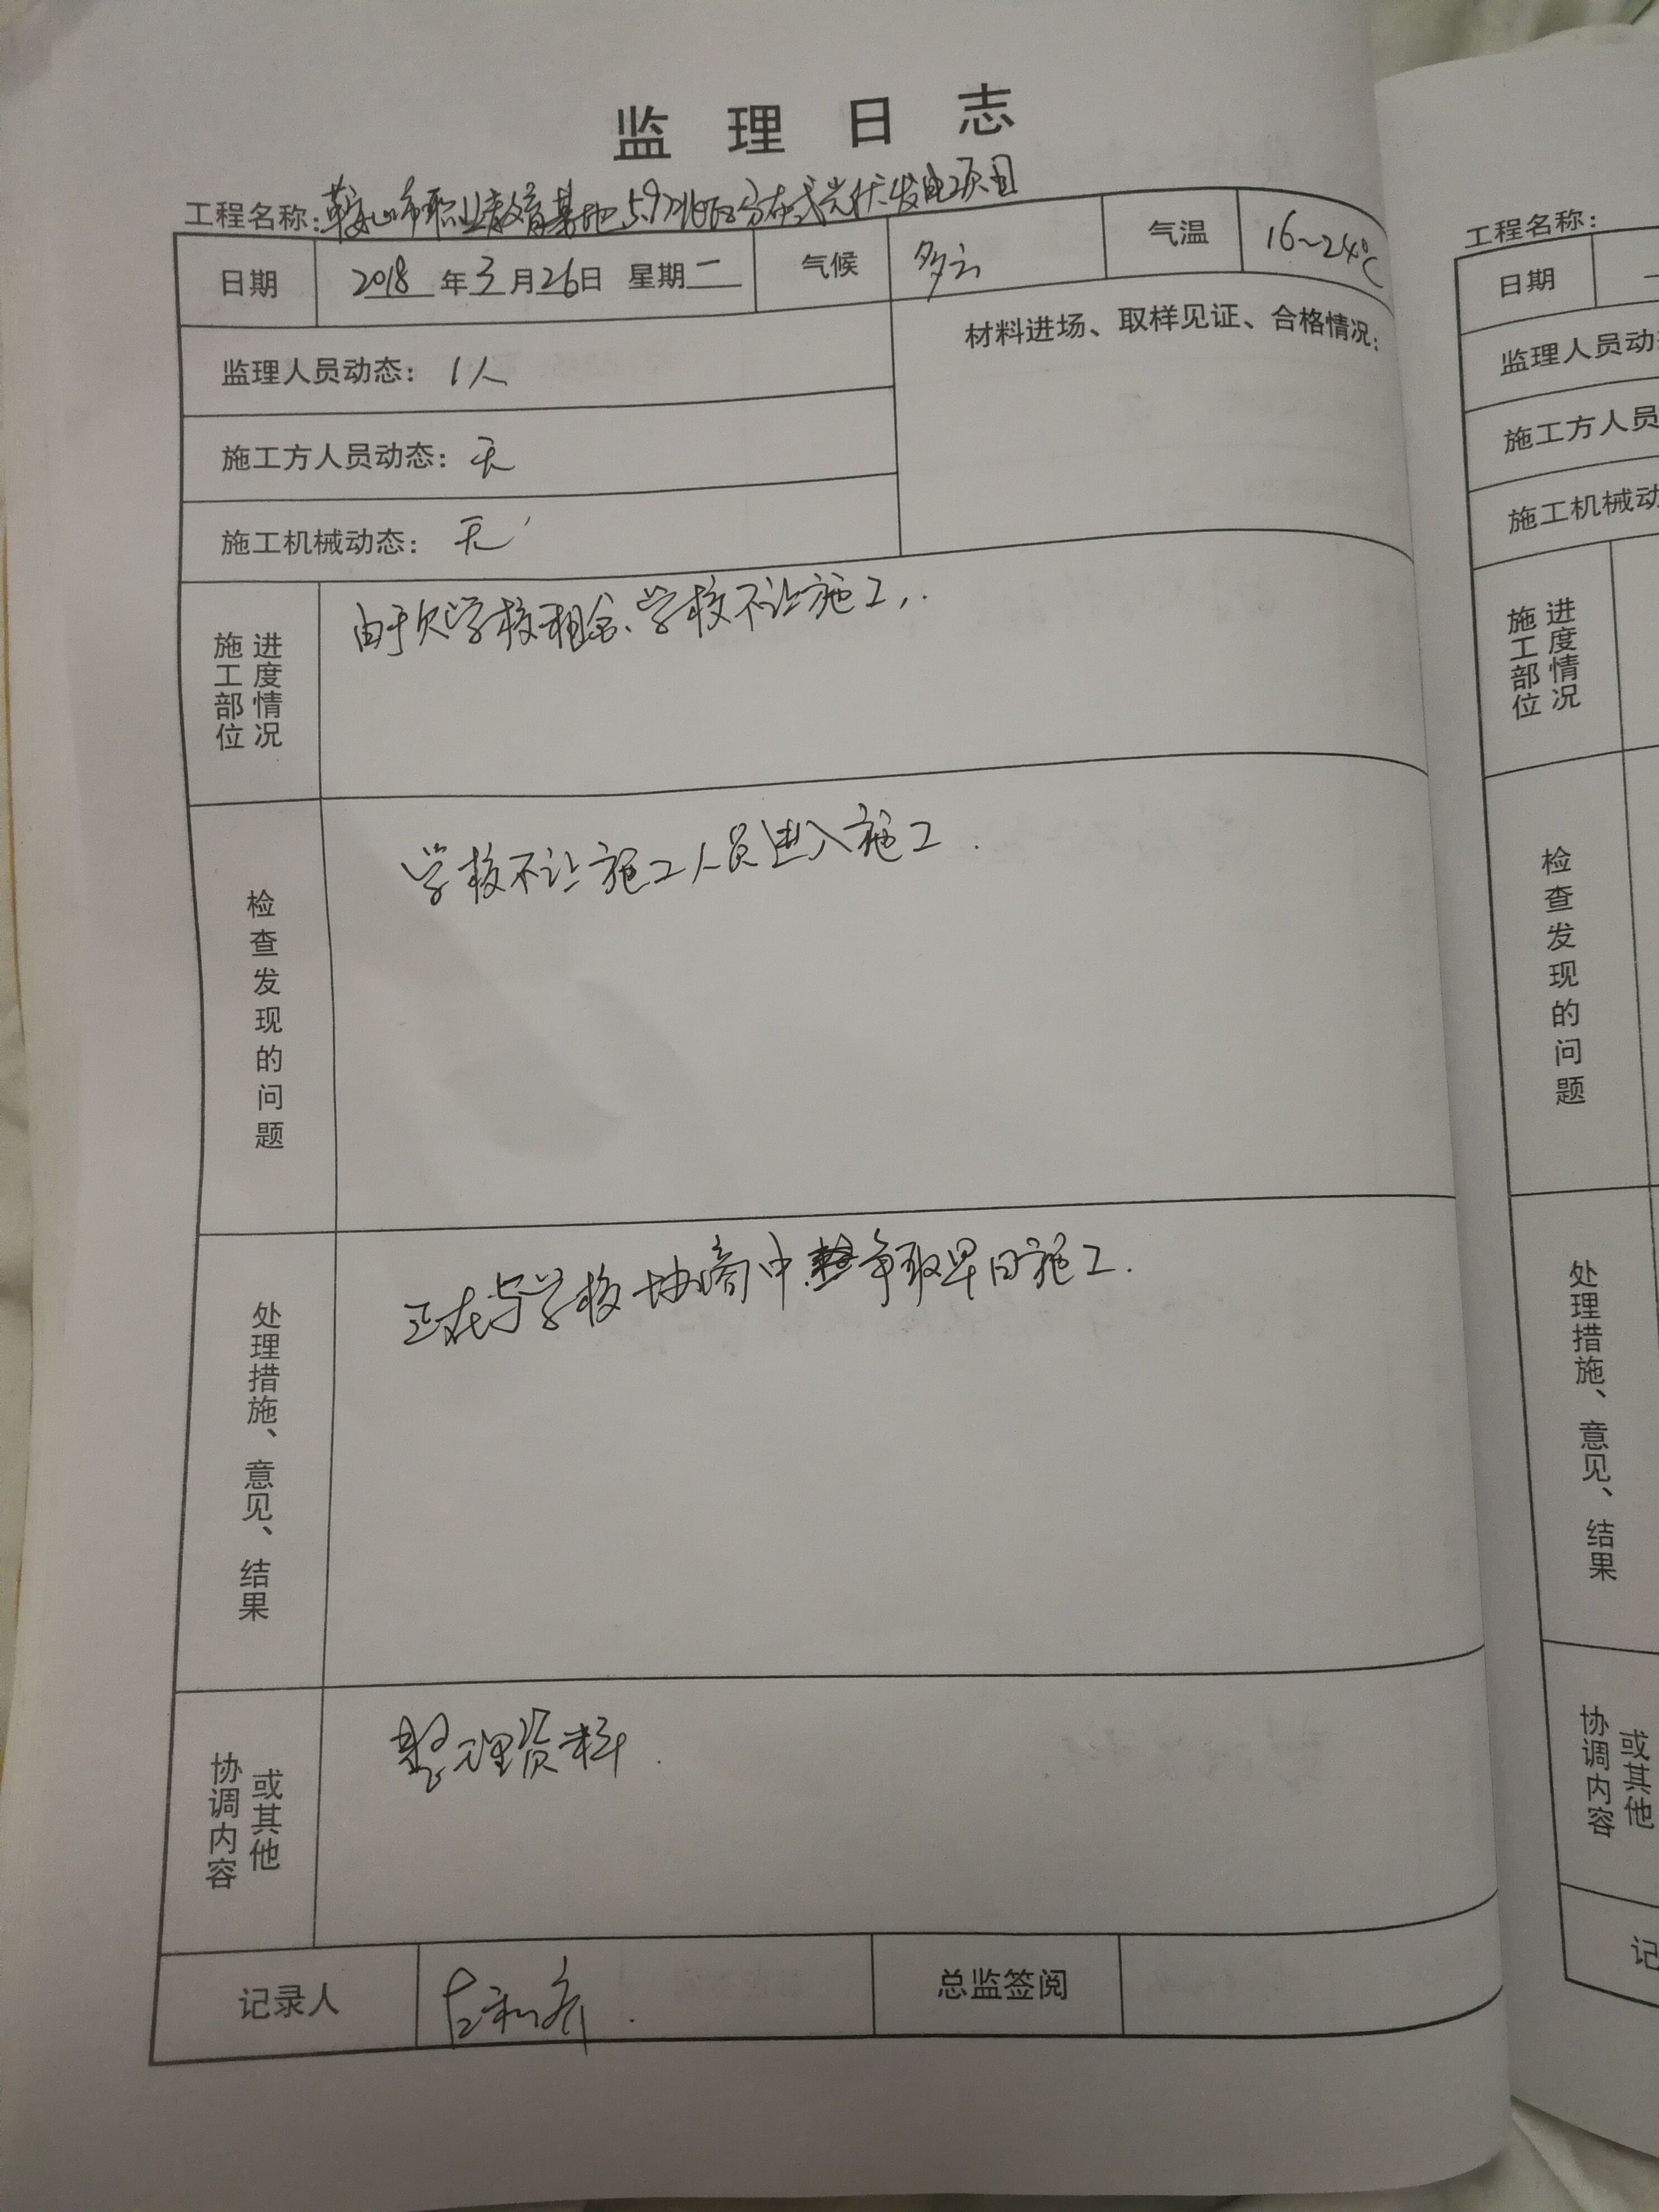 监理日志
工程名称：鞍山市职业教育基地5.9 分布式光伏发电项目
日期 2018年3月26日 星期二 气候 多云 气温 16~24℃
监理人员动态：1人
材料进场、取样见证、合格情况：
施工方人员动态：无
施工机械动态：无
施工部位
进度情况
由于欠学校租金、学校不让施工，.
检查发现的问题
学校不让施工人员进入施工.
处理措施、意见、结果
正在与学校协商中 争取早日施工.
协调内容
或其他
整理资料.
记录人 左和齐. 总监签阅
工程名称：
日期
监理人员动
施工方人员
施工机械动
施工部位
进度情况
检查发现的问题
处理措施、意见、结果
协调内容
或其他
记